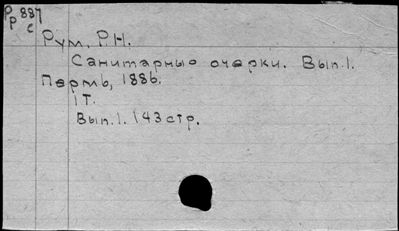 Рр887
с
Рум, Р.Н.
Санитарные очерки. Вып.1.
Пермь, 1886.
1 Т.
Вып.1. 143 стр.